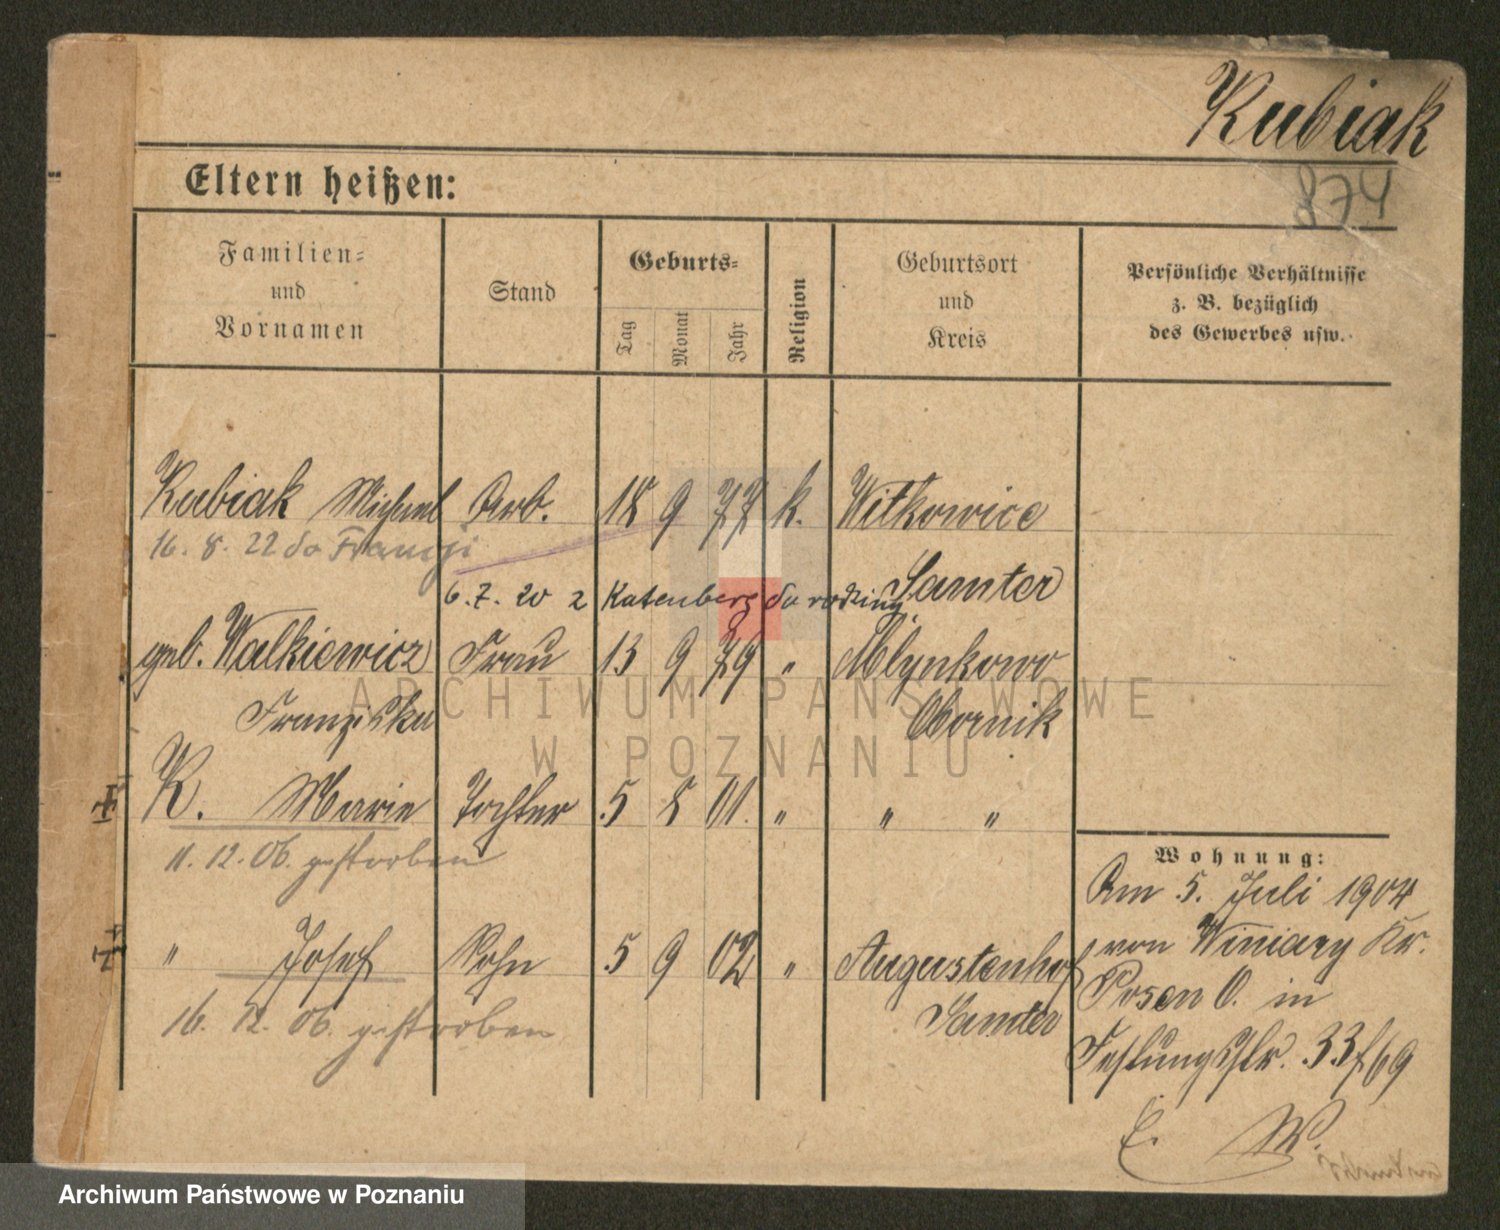 Kubiak
874
Eltern heißen:
Familien-
und
Vornamen
Stand
Geburts-
Tag
Monat
Jahr
Religion
Geburtsort
und
Kreis
Persönliche Verhältnisse
z. B. bezüglich
des Gewerbes usw.
Kubiak Michael Arb. 18 9 77 k. Witkowice
16. 8. 22 do Francji
Samter
6. 7. 20 z Katenberg do rodziny
geb. Walkiewicz Frau 13 9 79 " Mlynkowo
Franziska Obornik
K. Marie Tochter 5 8 01. " " "
11. 12. 06. gestorben
" Josef Sohn 5 9 02 " Augustenhof
16. 12. 06. gestorben Samter
Wohnung:
Am 5. Juli 1904
von Winiary Kr.
Posen O. in
Festungsstr. 33/69
E. W.
ARCHIWUM PAŃSTWOWE
W POZNANIU
Archiwum Państwowe w Poznaniu